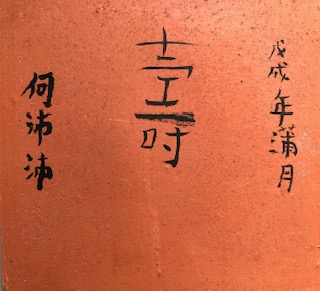 戊戌年蒲月
壽
何沛沛